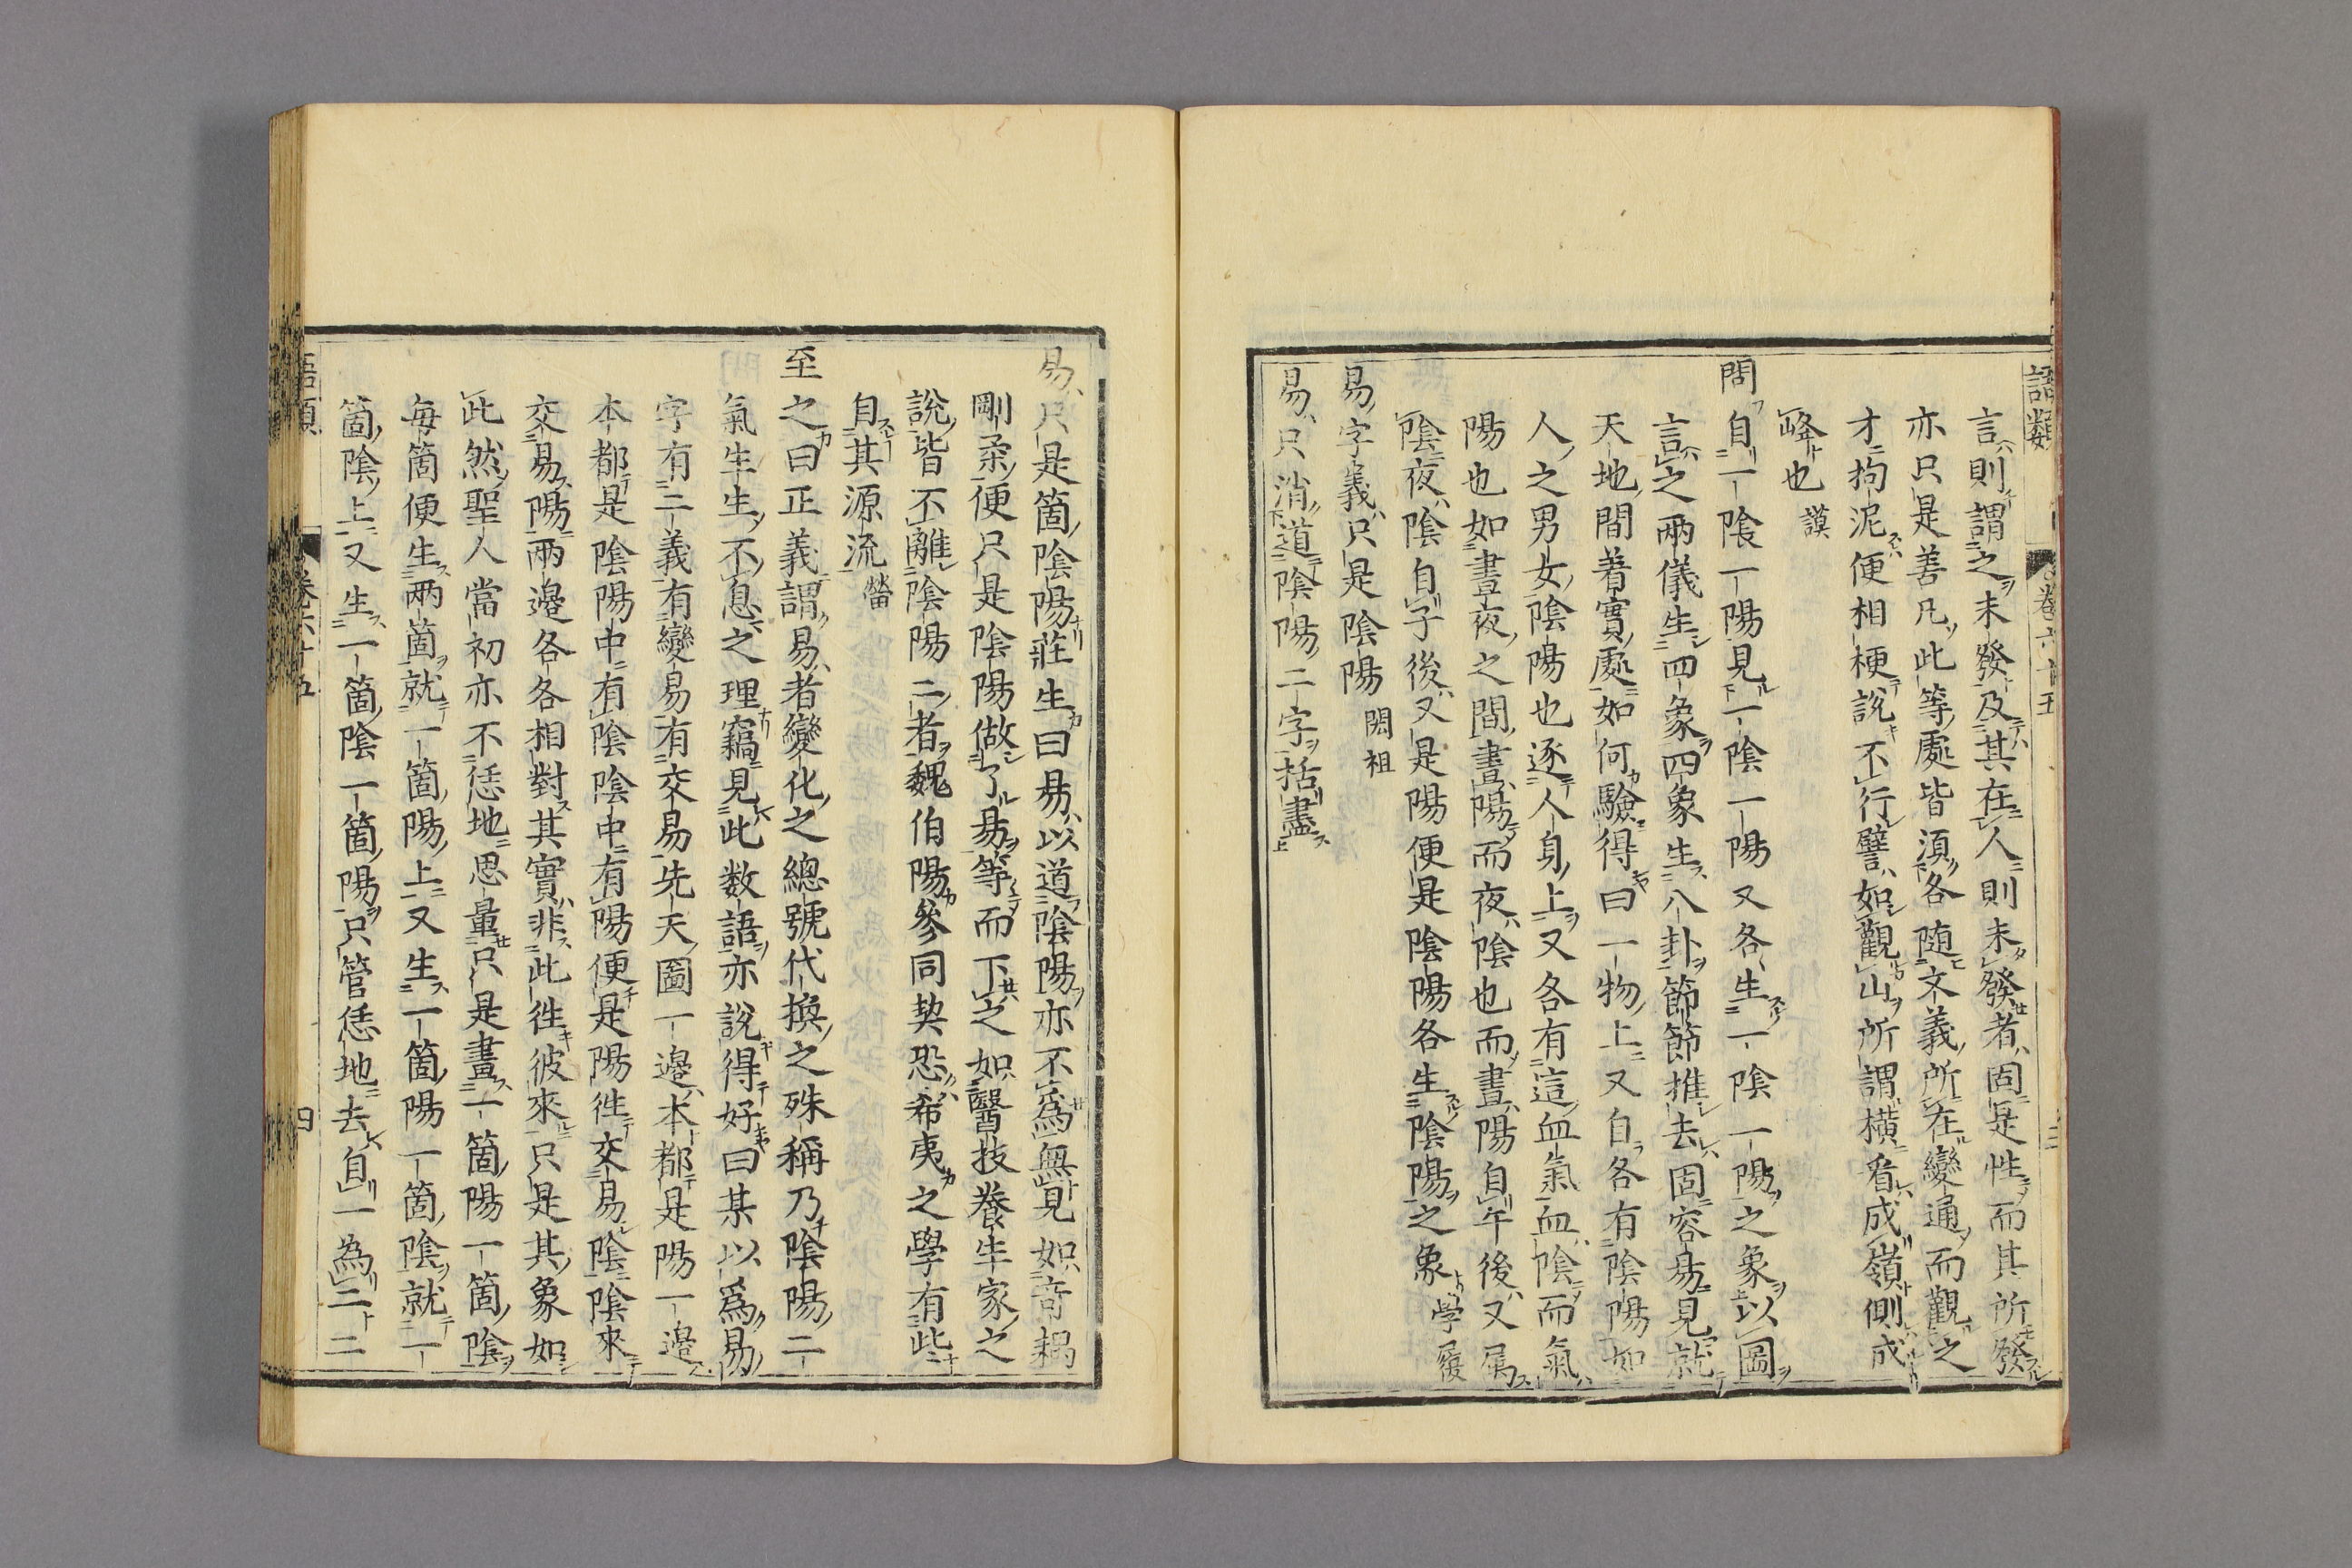 語類 卷六十五 三
言則謂之未發及其在人則未發者固是性而其所發
亦只是善凡此等處皆須各随文義所在變通而觀之
才拘泥便相梗說不行譬如觀山所謂横看成嶺側成
峰也 謨
問自一陰一陽見一陰一陽又各生一陰一陽之象以圖
言之兩儀生四象四象生八卦節節推去固容易見就
天地間着實處如何驗得曰一物上又自各有陰陽如
人之男女陰陽也逐人身上又各有這血氣血陰而氣
陽也如晝夜之間晝陽而夜陰也而晝陽自午後又屬
陰夜陰自子後又是陽便是陰陽各生陰陽之象 学履
易字義只是陰陽 閎祖
易只消道陰陽二字括盡
易只是箇陰陽莊生曰易以道陰陽亦不為無見如奇耦
剛柔便只是陰陽做了易等而下之如醫技養生家之
說皆不離陰陽二者魏伯陽參同契恐希夷之學有些
自其源流 㽦
至之曰正義謂易者變化之總號代換之殊稱乃陰陽二
氣生生不息之理竊見此数語亦說得好曰某以爲易
字有二義有變易有交易先天圖一邉本都是陽一邉
本都是陰陽中有陰陰中有陽便是陽徃交易陰陰來
交易陽兩邉各各相對其實非此徃彼來只是其象如
此然聖人當初亦不恁地思量只是畫一箇陽一箇陰
每箇便生兩箇就一箇陽上又生一箇陽一箇陰就一
箇陰上又生一箇陰一箇陽只管恁地去自一為二二
語類 卷六十五 四